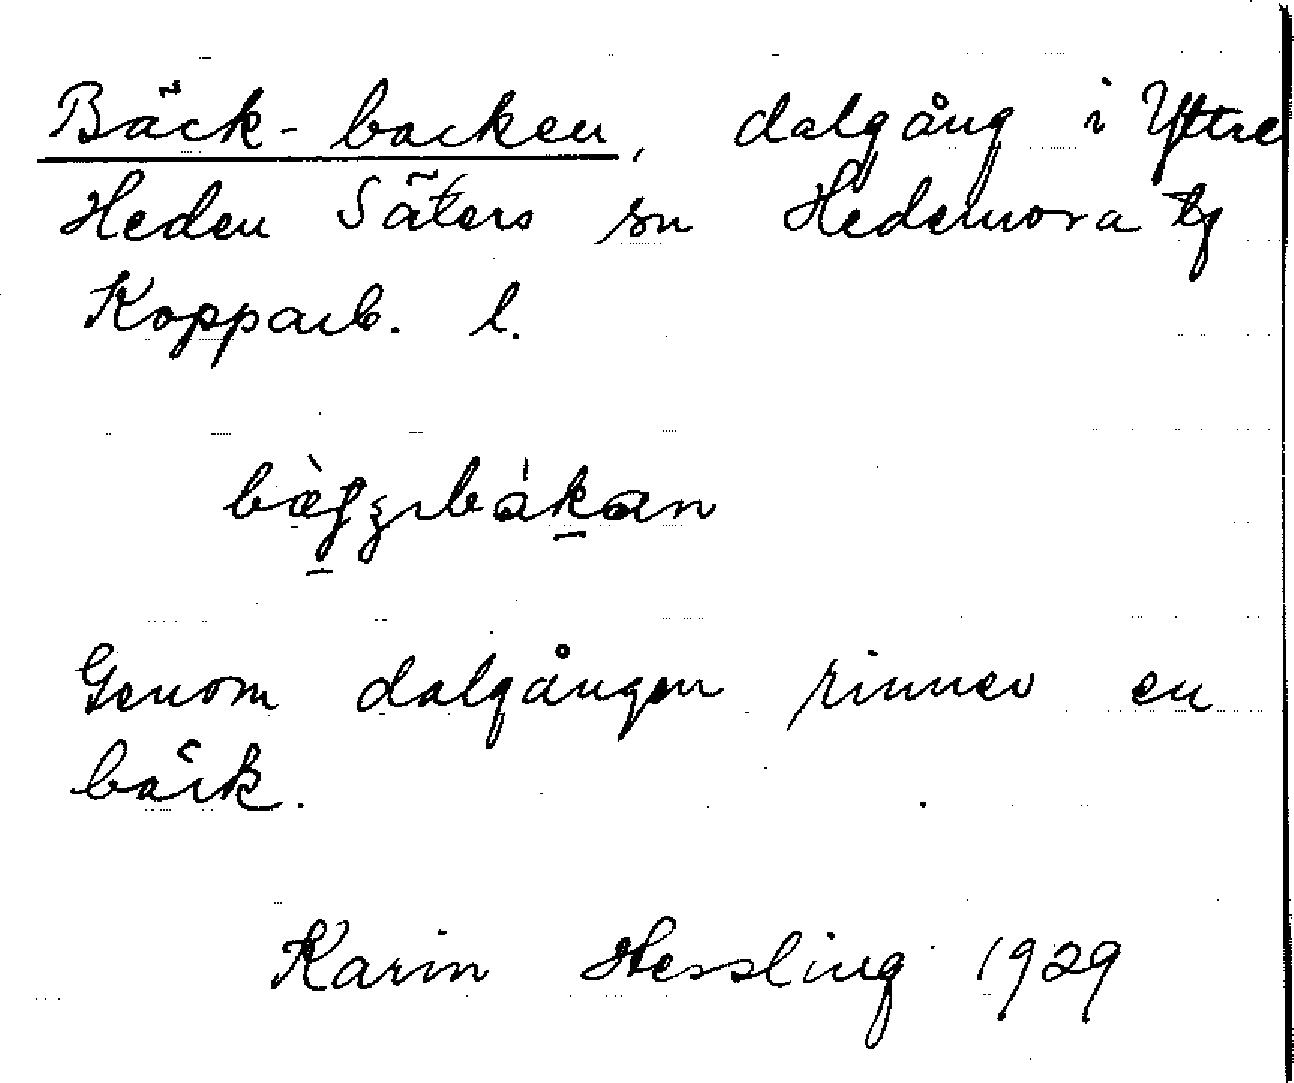 Bäck-backen, dalgång i Yttre
Heden Säters sn Hedemora tg
Kopparb. l.
Genom dalgången rinner en
bäck.
Karin Hessling 1929